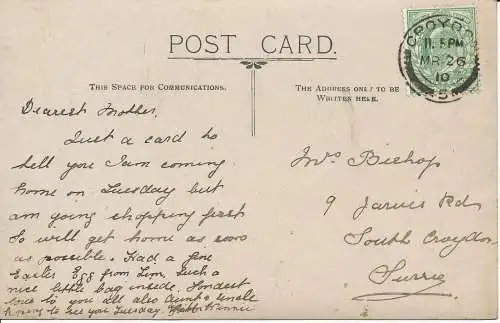 POST CARD.
THIS SPACE FOR COMMUNICATIONS.
THE ADDRESS ONLY TO BE
WRITTEN HERE.
CROYDON
11.5PM
MR 26
10
S
Dearest Mother,
Just a card to
tell you I am coming
home on Tuesday but
am going shopping first
So will get home as soon
as possible. Had a fine
Easter Egg from Lim, Such a
nice little bag inside. Fondest
love to you all also Aunt & Uncle
hoping to see you Tuesday.
Mrs Bishop
9 Jarvis Rd
South Croydon
Surrey